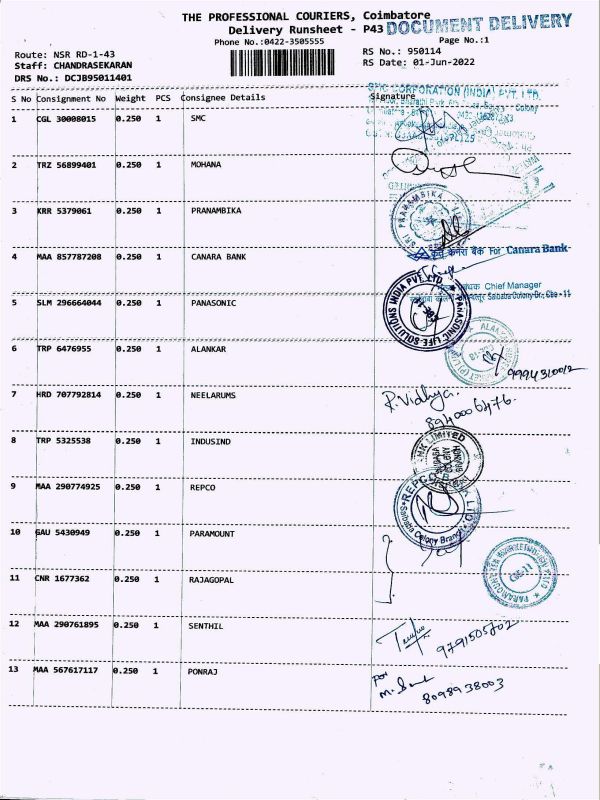 THE PROFESSIONAL COURIERS, Coimbatore
Delivery Runsheet - P43 DOCUMENT DELIVERY
Phone No.:0422-3505555
Page No.:1
Route: NSR RD-1-43
RS No.: 950114
Staff: CHANDRASEKARAN
RS Date: 01-Jun-2022
DRS No.: DCJB95011401
S No Consignment No Weight PCS Consignee Details Signature
SMC CORPORATION (INDIA) PVT. LTD.
1 CGL 30008015 0.250 1 SMC
2 TRZ 56899401 0.250 1 MOHANA
3 KRR 5379061 0.250 1 PRANAMBIKA
SRI PRANAMBIKA
4 MAA 857787208 0.250 1 CANARA BANK
केनरा बैंक For Canara Bank
Chief Manager
Saibaba Colony Br., Cbe - 11
5 SLM 296664044 0.250 1 PANASONIC
PANASONIC LIFE SOLUTIONS INDIA PVT LTD
6 TRP 6476955 0.250 1 ALANKAR
9994310012
7 HRD 707792814 0.250 1 NEELARUMS
R. Vidhya.
8940006476.
8 TRP 5325538 0.250 1 INDUSIND
BANK LIMITED
9 MAA 290774925 0.250 1 REPCO
REPCO
Saibaba Colony Branch
10 GAU 5430949 0.250 1 PARAMOUNT
CBE-11
11 CNR 1677362 0.250 1 RAJAGOPAL
12 MAA 290761895 0.250 1 SENTHIL
9791505702
13 MAA 567617117 0.250 1 PONRAJ
8098938003